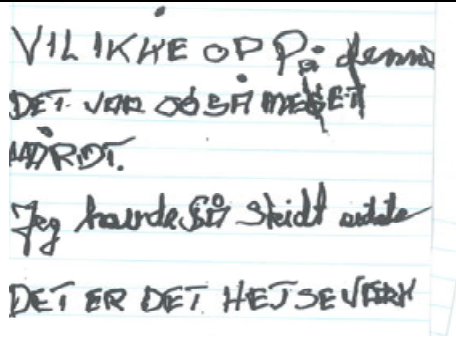 VIL IKKE OPP På denne
DET VAR OGSÅ MEGET
HÅRDT.
Jeg havde SÅ Skidt
DET ER DET HEJSEVÆRK